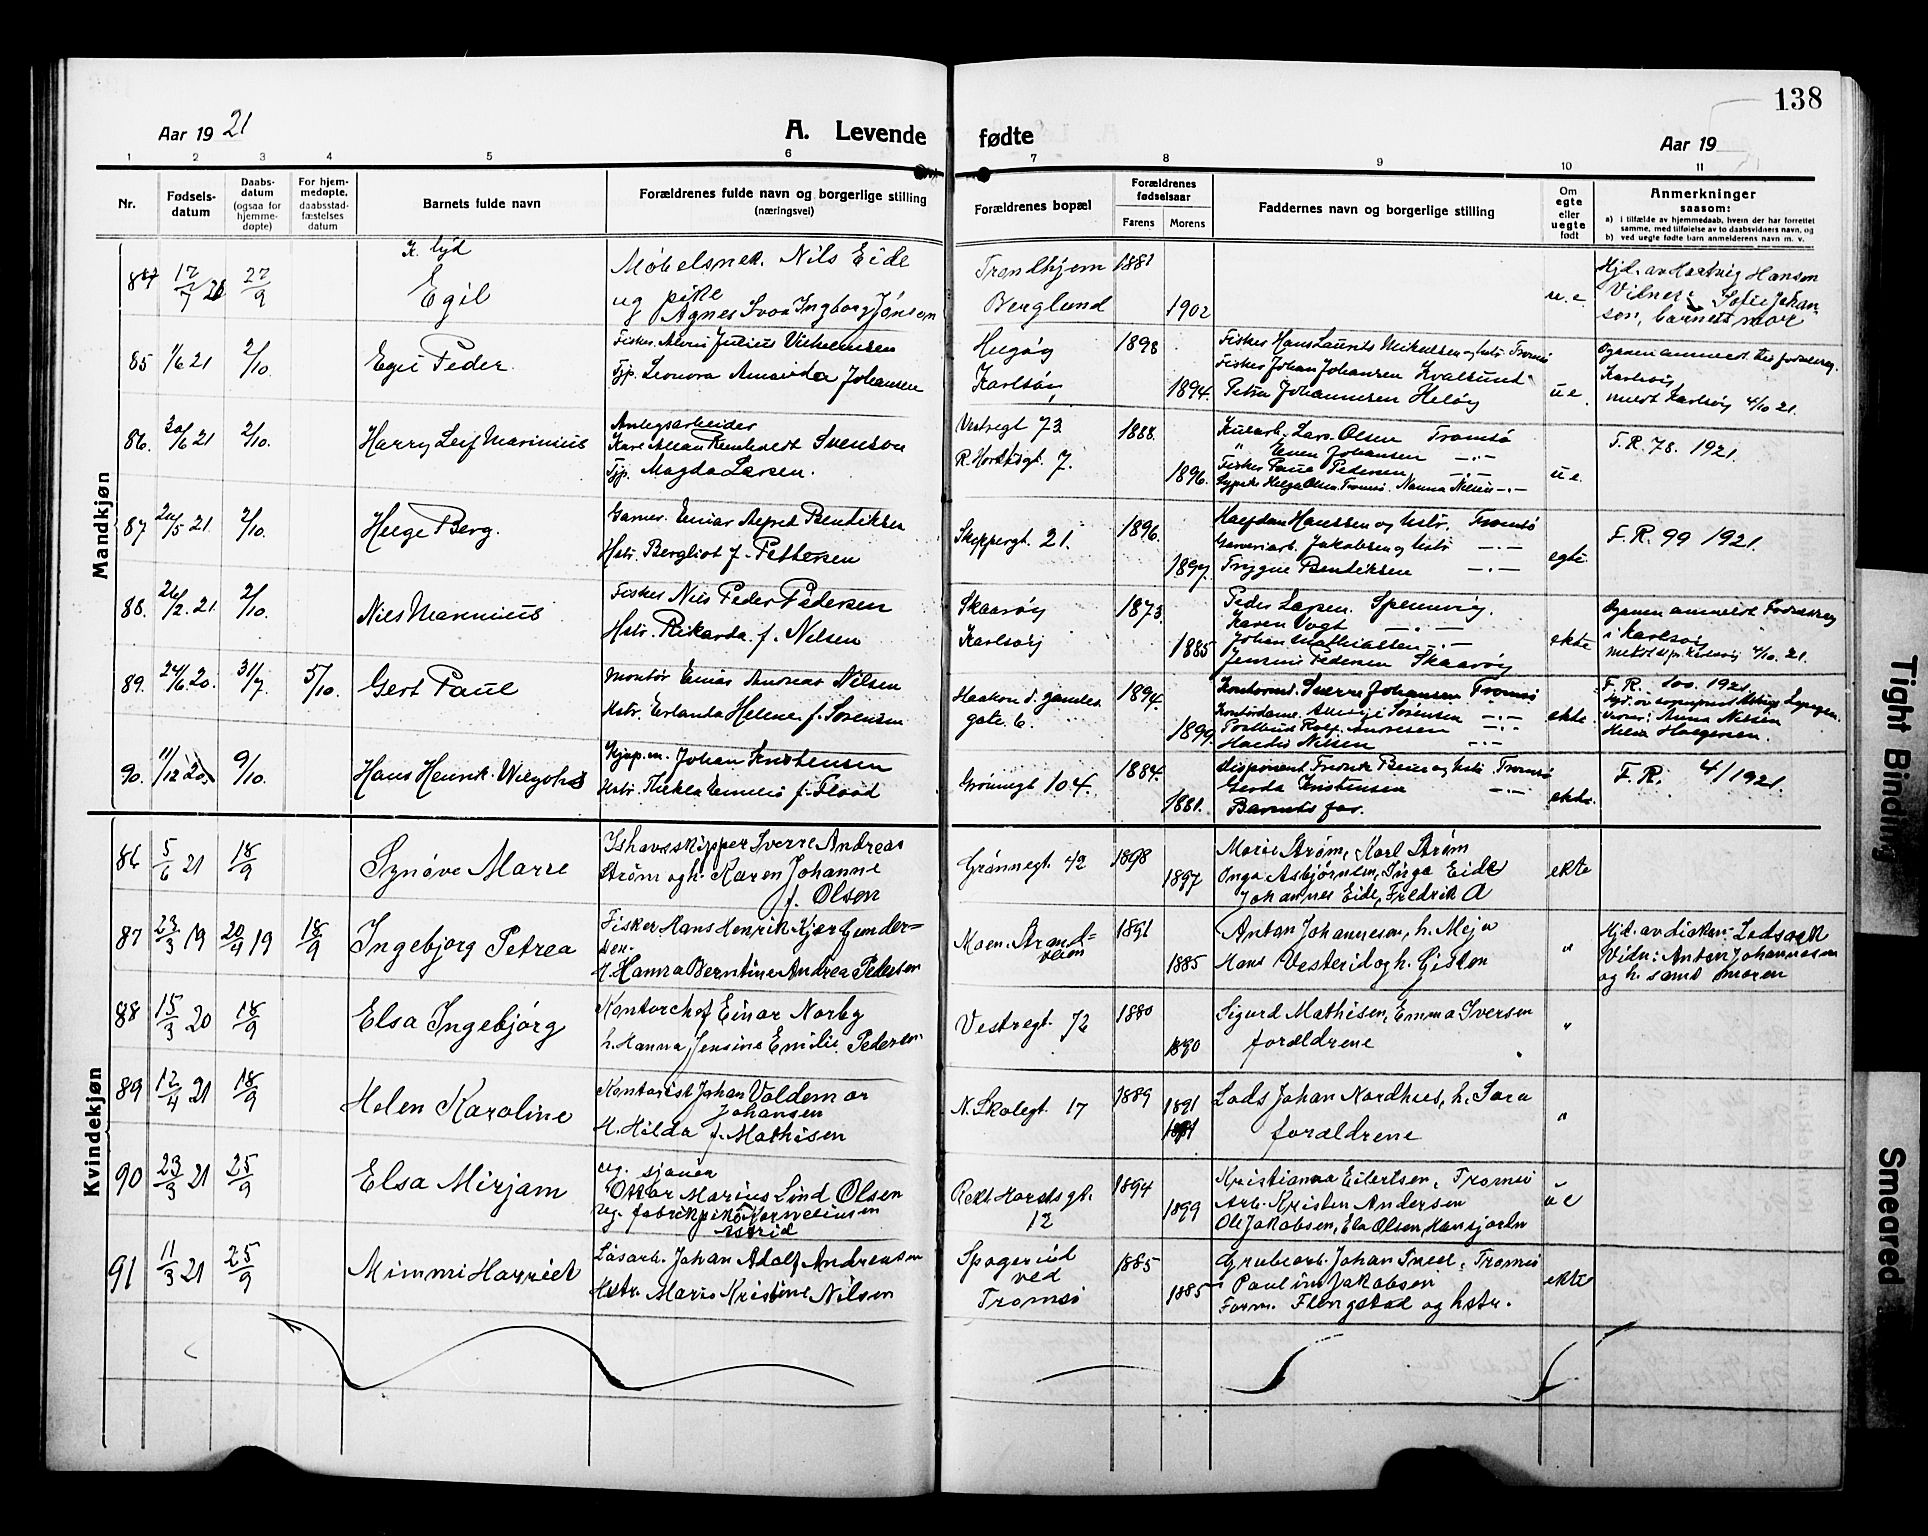 138
Aar 19 21
A. Levende fødte
Aar 19
1 2 3 4 5 6 7 8 9 10 11
Nr.
Fødsels-
datum
Daabs-
datum
(ogsaa for
hjemme-
døpte)
For hjem-
medøpte,
daabsstad-
fæstelses
datum
Barnets fulde navn
Forældrenes fulde navn og borgerlige stilling
(næringsvei)
Forældrenes bopæl
Forældrenes
fødselsaar
Farens Morens
Faddernes navn og borgerlige stilling
Om
egte
eller
uegte
født
Anmerkninger
saasom:
a) i tilfælde av hjemmedaab, hvem der har forrettet
samme, med tilføielse av to daabsvidners navn, og
b) ved uegte fødte barn anmelderens navn m. v.
Mandkjøn
84 17/7 21 27/9
Egil
Møbelsnek. Nils Eide
ug pike
Agnes Svoa Ingborg Jønson
Trondhjem
Berglund
1881
1902
u.e
Hjd. av Hartvig Hanson
Vitner: Sofie Johan-
son, barnets mor
85 1/6 21 2/10.
Egil Peder.
Fisker Julius Vilhelmsen
Tjp. Leonora Amanda Johansen
Helgøy
Karlsøy
1898
1894.
Fisker Hans Laurits Mikalsen og hstr. Tromsø
Fisker Johan Johansen Kvalsund
Petra Johannesen Helgøy
u e.
Karlsøy
meldt Karlsøy 4/10 21.
86. 30/6 21 2/10.
Harry Leif Marinius
Anlegsarbeider
Karl Johan Reinholdt Svenson
Tjp. Magda Larsen.
Vestregt 73
R. Horstsgt. 7.
1888.
1896.
Kularb. Lars Olsen Tromsø
" Einer Johansen —.—
Fisker Paul Pedersen —.—
Helga Olsen Tromsø. Nanna Nilsen —.—
u e.
F.R. 78. 1921.
87 20/5 21 2/10.
Helge Berg.
Garver. Einar Alfred Bendiksen
Hstr. Bergliot f. Pettersen
Skippergt. 21.
1896.
1897.
Halfdan Hanssen og hstr. Tromsø
Garveriarb. Jakobsen og hstr —.—
Trygve Bendiksen —.—
egte.
F.R. 99 1921.
88. 26/2. 21. 2/10.
Nils Marinius
Fisker Nils Peder Pedersen
Hstr. Rikarda f. Nilsen
Skaarøy
Karlsøy
1873.
1885
Peder Larsen. Spennvig.
Karen Vogt —.—
Johan Mathiassen —.—
Jensine Pedersen Skaarøy
ekte
i Karlsøy
4/10. 21.
89. 24/6. 20. 31/7. 5/10.
Gert Paul
Montør Einar Andreas Nilsen
Hstr. Erlanda Helene f. Sørensen
Haakon d. gamles
gate. 6.
1894.
1899.
Kontorist. Sverre Johansen Tromsø
Kontordame. Sørensen —.—
Postbud Rolf Andresen —.—
Nilsen —.—
ekte.
F.R. 100. 1921.
Vitner: Anna Nilsen
90. 11/12 20. 9/10.
Hans Henrik Wilgohs
Kjøpm. Johan Kristensen
Hstr. Thekla Emelie f. Flood
Grønnegt 104.
1884.
1881.
Disponent. Fredrik Beier og hstr. Tromsø
Gerda Kristensen —.—
Barnets far.
ekte.
F.R. 4/1921.
Kvindekjøn
86 5/6 21 18/9
Synøve Marie
Ishavsskipper Sverre Andreas
Strøm og h. Karen Johanne
f. Olsen
Grønnegt. 42
1898
1897
Marie Strøm, Karl Strøm
Inga Asbjørnsen, Inga Eide
Johannes Eide, Fredrik A
ekte
87 23/3 19 20/4 19 18/9
Ingebjørg Petrea
Fisker Hans Henrik Kjær Gunder-
sen.
H. Hanna Berntine Andrea Pedersen
Moen. Strand-
veien
1891
1885
Anton Johannesen, h. Meja
Hans Vesterid og h. Gisten
"
Hjd. av diakon Lodsvek
Vidn: Anton Johannesen
og h. samt moren
88 15/3 20 18/9
Elsa Ingebjørg
Kontorchef Einar Norby
h. Hanna Jensine Emilie Pedersen
Vestregt. 72
1880
1880
Sigurd Mathisen, Emma Iversen
forældrene
"
89 12/4 21 18/9
Helen Karoline
Kontorist Johan Valdemar
Johansen
H. Hilda f. Mathisen
N. Skolegt. 17
1889
1891
Lods Johan Nordhus, h. Sara
forældrene
"
90 23/3 21 25/9
Elsa Mirjam
ug. sjauer
Ottar Marius Lind Olsen
ug. fabrikpike Kornelinsen
Astrid
Rekt. Horstsgt.
12
1894
1899
Kristianna Eilertsen, Tromsø
Arb. Kristen Andersen
Ole Jakobsen, Ela Olsen, Hansjorda
u e
91 11/3 21 25/9
Mimmi Harriet
Løsarb. Johan Adolf Andreassen
Hstr. Marie Kristine Nilsen
Spogeriid
ved
Tromsø
1885
1885
Grubearb. Johan Smeel, Tromsø
Pauline Jakobsen
Form. Flengstad og hstr.
ekte
Tight Binding
Smeared